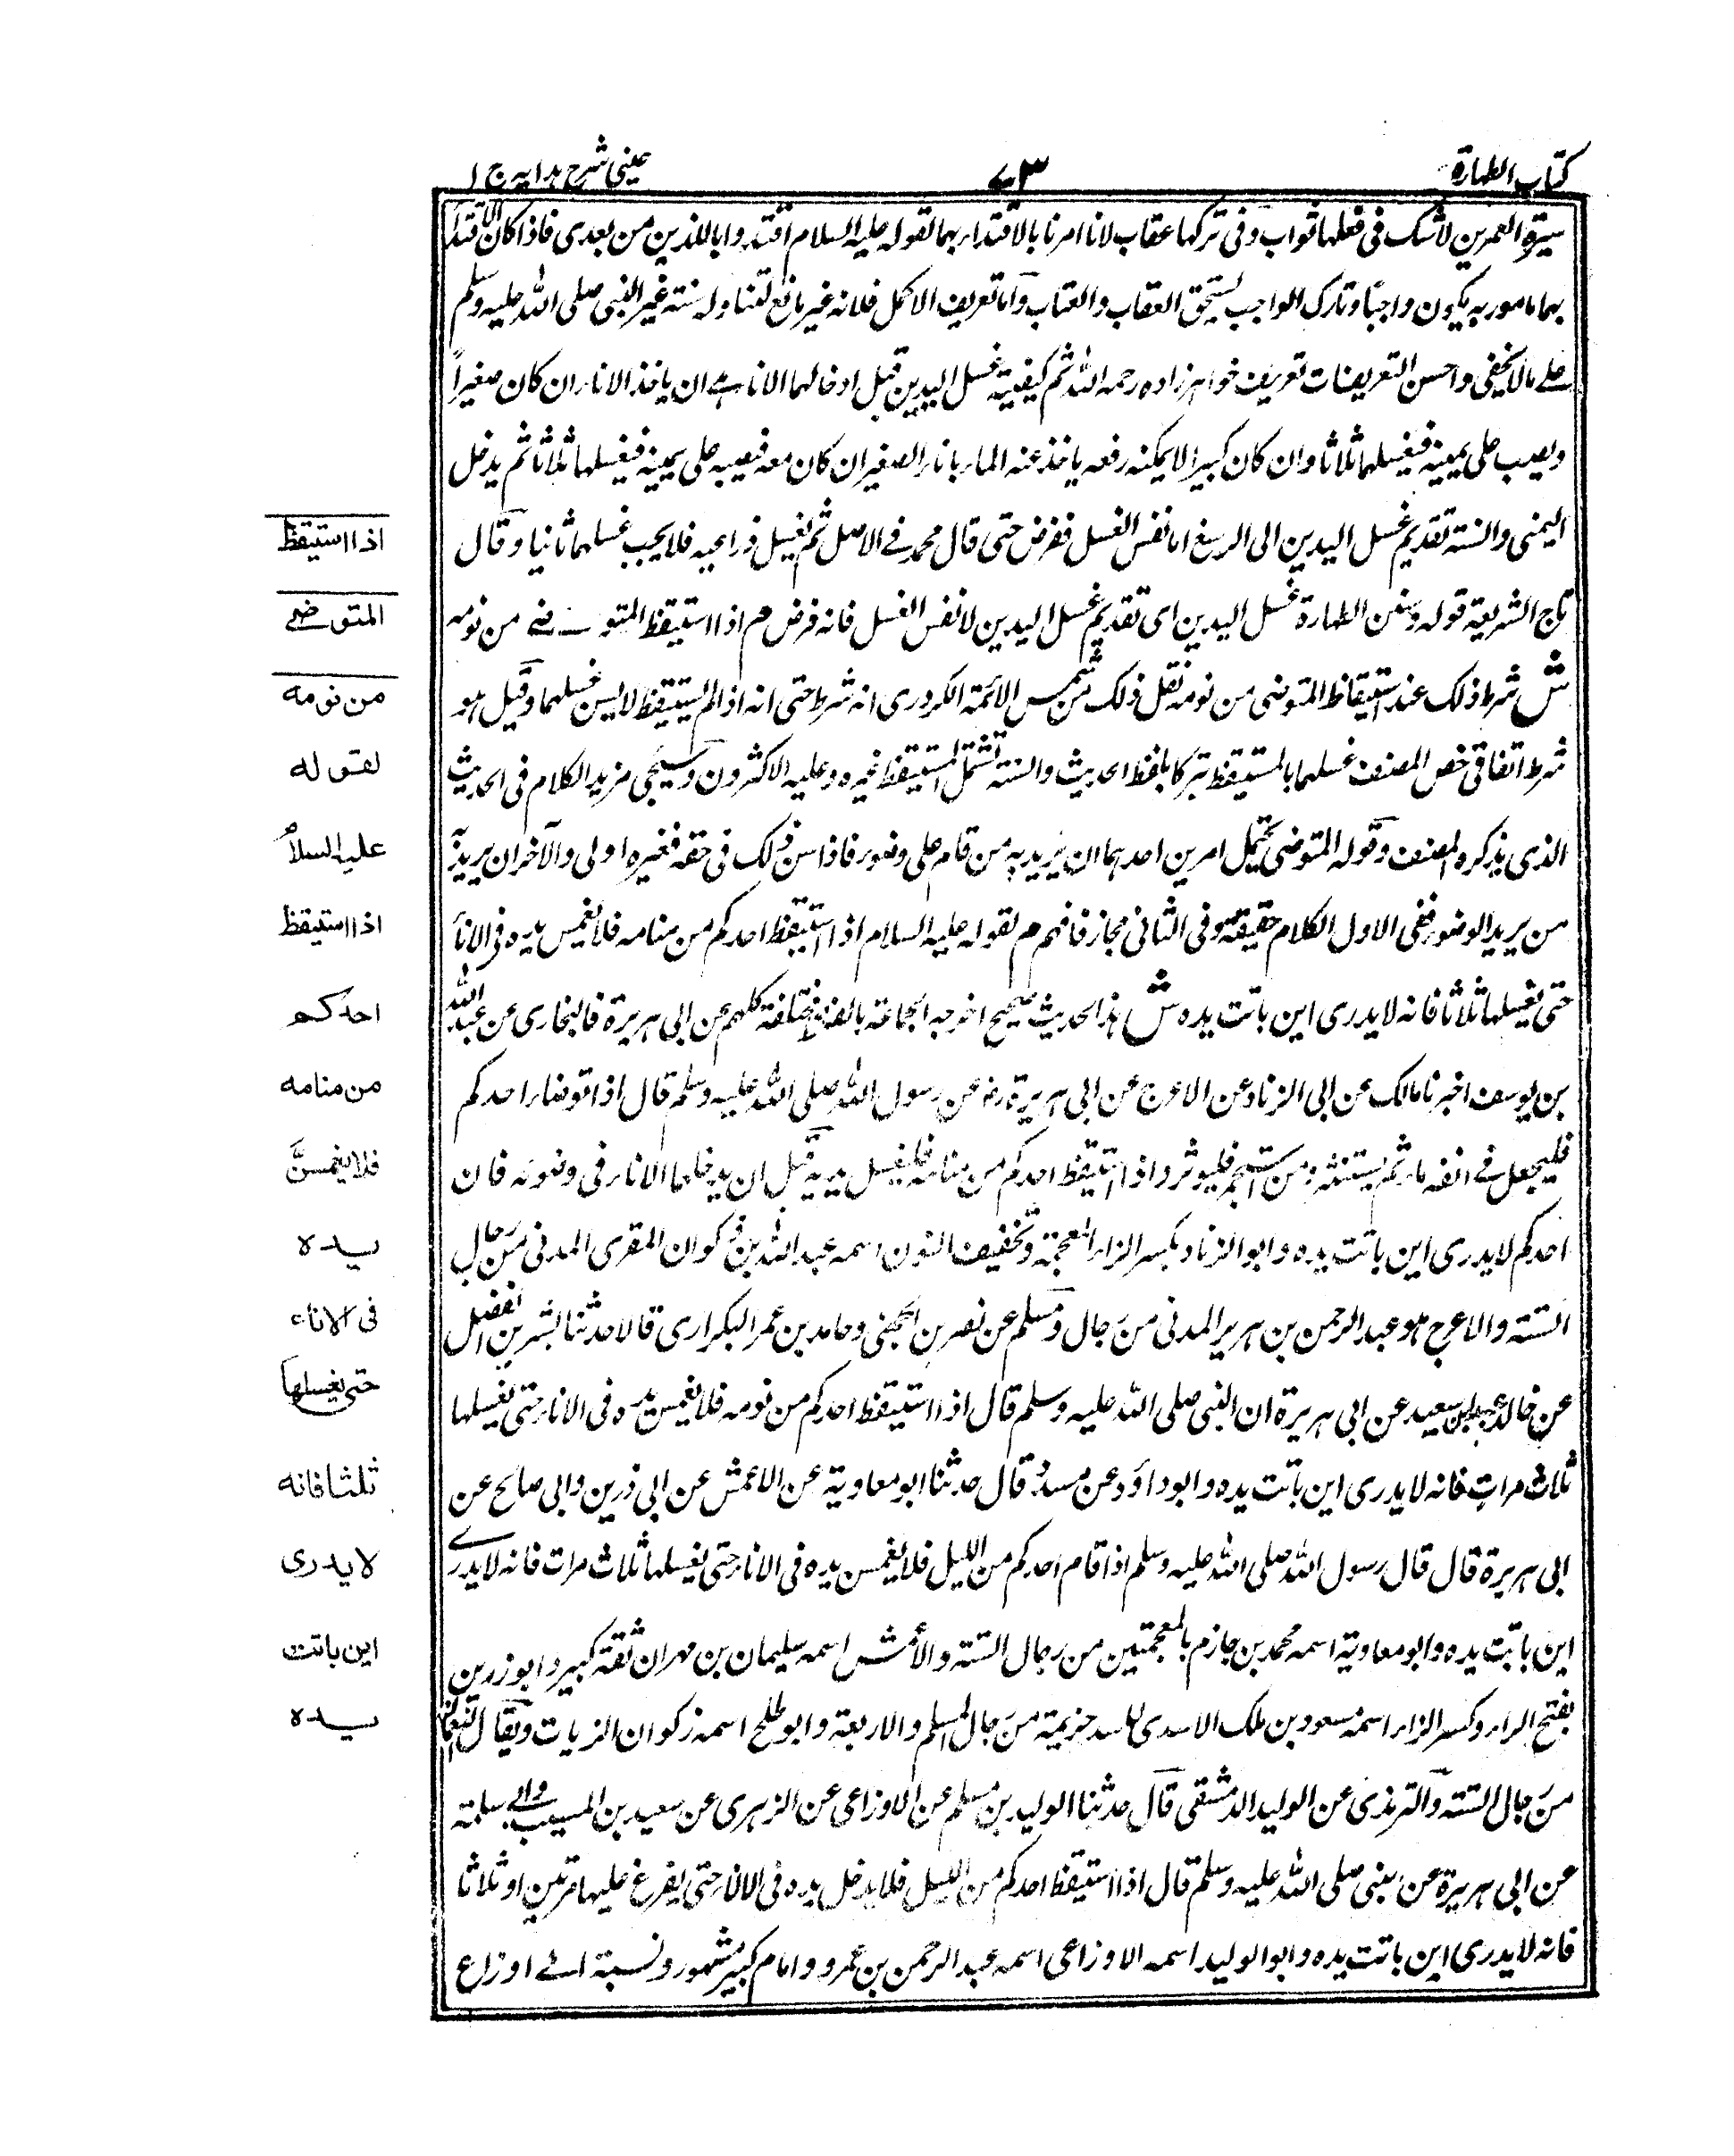 كتاب الطهارة
٧٣
عينى شرح هدايه ج ١
سيرة العمرين لاشك فى فعلها ثواب وفى تركها عقاب لانا امرنا بالاقتداء بهما لقوله عليه السلام اقتدوا باللذين من بعدى فاذا كان الاقتداء
بهما مامور به يكون واجبا وتارك الواجب يستحق العقاب والعتاب واما تعريف الاكمل فلانه غير مانع لتناوله سنة غير النبى صلى الله عليه وسلم
على مالا يخفى واحسن التعريفات تعريف خواهرزاده رحمه الله ثم كيفية غسل اليدين قبل ادخالهما الاناء هى ان ياخذ الاناء ان كان صغيراً
ويصب على يمينه فيغسلها ثلاثا وان كان كبيرا لايمكنه رفعه ياخذ عنه الماء باناء الصغير ان كان معه فيصبه على يمينه فيغسلها ثلاثا ثم يدخل
اليمنى والسنة تقديم غسل اليدين الى الرسغ اما نفس الغسل ففرض حتى قال محمد فى الاصل ثم يغسل ذراعيه فلايجب غسلهما ثانيا وقال
تاج الشريعة قوله وسنن الطهارة غسل اليدين اى تقديم غسل اليدين لانفس الغسل فانه فرض م اذا استيقظ المتوضى من نومه
ش شرط ذلك عند استيقاظ المتوضى من نومه نقل ذلك من شمس الائمة الكردرى انه شرط حتى انه اذا لم يستيقظ لايسن غسلهما وقيل هو
شرط اتفاقى خص المصنف غسلهما بالمستيقظ تبركا بلفظ الحديث والسنة تشتمل المستيقظ غيره وعليه الاكثرون وسيجى مزيد الكلام فى الحديث
الذى يذكره المصنف وقوله المتوضى يحتمل امرين احدهما ان يريد به من قام على وضوء فاذا سن ذلك فى حقه فغيره اولى والآخر ان يريد به
من يريد الوضوء ففى الاول الكلام حقيقة وفى الثانى مجاز فافهم م لقوله عليه السلام اذا استيقظ احدكم من منامه فلايغمس يده فى الاناء
حتى يغسلها ثلاثا فانه لايدرى اين باتت يده ش هذا الحديث صحيح اخرجه الجماعة بالفاظ مختلفة كلهم عن ابى هريرة فالبخارى عن عبد الله
بن يوسف اخبرنا مالك عن ابى الزناد عن الاعرج عن ابى هريرة رض عن رسول الله صلى الله عليه وسلم قال اذا توضاء احدكم
فليجعل فى انفه ماء ثم يستنثر ومن استجمر فليوتر واذا استيقظ احدكم من منامه فليغسل يديه قبل ان يدخلهما الاناء فى وضوئه فان
احدكم لايدرى اين باتت يده وابو الزناد بكسر الزاء المعجمة وتخفيف النون اسمه عبد الله بن ذكوان المقرى المدنى من رجال
الستة والاعرج هو عبد الرحمن بن هريز المدنى من رجال ومسلم عن نصر بن الجهضى وحامد بن عمر البكراوى قالا حدثنا بشر بن المفضل
عن خالد عن عبد الله بن سعيد عن ابى هريرة ان النبى صلى الله عليه وسلم قال اذا استيقظ احدكم من نومه فلايغمس يده فى الاناء حتى يغسلها
ثلاث مرات فانه لايدرى اين باتت يده وابو داؤد عن مسدد قال حدثنا ابو معاوية عن الاعمش عن ابى ذرين وابى صالح عن
ابى هريرة قال قال رسول الله صلى الله عليه وسلم اذا قام احدكم من الليل فلايغمس يده فى الاناء حتى يغسلها ثلاث مرات فانه لايدرى
اين باتت يده وابو معاوية اسمه محمد بن حازم بالمعجمتين من رجال الستة والاعمش اسمه سليمان بن مهران ثقة كبير وابو زرين
بفتح الراء وكسر الزاء اسمه مسعود بن ملك الاسدى اسد خزيمة من رجال المسلم والاربعة وابو طلح اسمه زكوان الزيات ويقال
من رجال الستة والترمذى عن الوليد الدمشقى قال حدثنا الوليد بن مسلم عن الاوزاعى عن الزهرى عن سعيد بن المسيب وابى سلمة
عن ابى هريرة عن بنى صلى الله عليه وسلم قال اذا استيقظ احدكم من الليل فلايدخل يده فى الاناء حتى يفرغ عليها مرتين او ثلاثا
فانه لايدرى اين باتت يده وابو الوليد اسمه الاوزاعى اسمه عبد الرحمن بن عمرو وامام كبير مشهور ونسبة الى اوزاع
اذا استيقظ
المتوضى
من نومه
لقوله
عليه السلام
اذا استيقظ
احدكم
من منامه
فلا يغمسنَّ
يده
فى الاناء
حتى يغسلها
ثلثا فانه
لا يدرى
اين باتت
يده